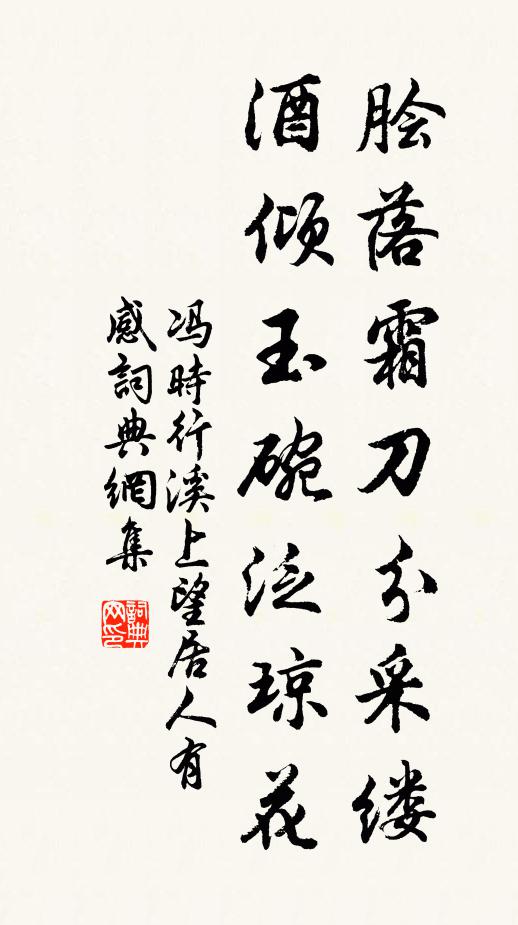 脍落霜刀分采缕
酒倾玉碗泛琼花
冯時行溪上望居人有
感詞典網集
詞典
网印